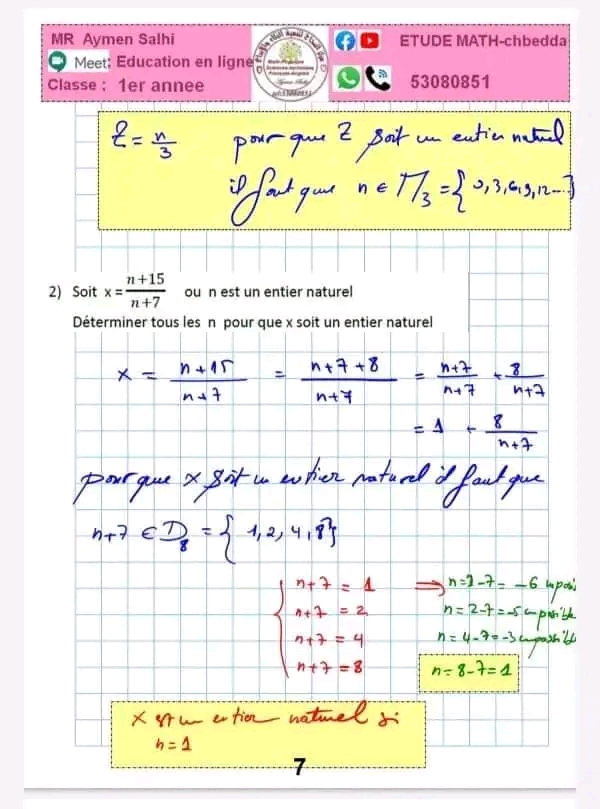 MR Aymen Salhi
Meet: Education en ligne
Classe : 1er annee
ETUDE MATH-chbedda
53080851
Z = n/3 pour que Z soit un entier naturel
il faut que n ∈ M₃ = {0,3,6,9,12....}
2) Soit x = (n+15)/(n+7) ou n est un entier naturel
Déterminer tous les n pour que x soit un entier naturel
x = (n+15)/(n+7) = (n+7+8)/(n+7) = (n+7)/(n+7) + 8/(n+7)
= 1 + 8/(n+7)
pour que x soit un entier naturel il faut que
n+7 ∈ D₈ = {1,2,4,8}
n+7 = 1 ⟹ n=1-7= -6 impossi
n+7 = 2 n=2-7=-5 impossible
n+7 = 4 n=4-7=-3 impossible
n+7 = 8 n=8-7=1
x est un entier naturel si
n=1
7